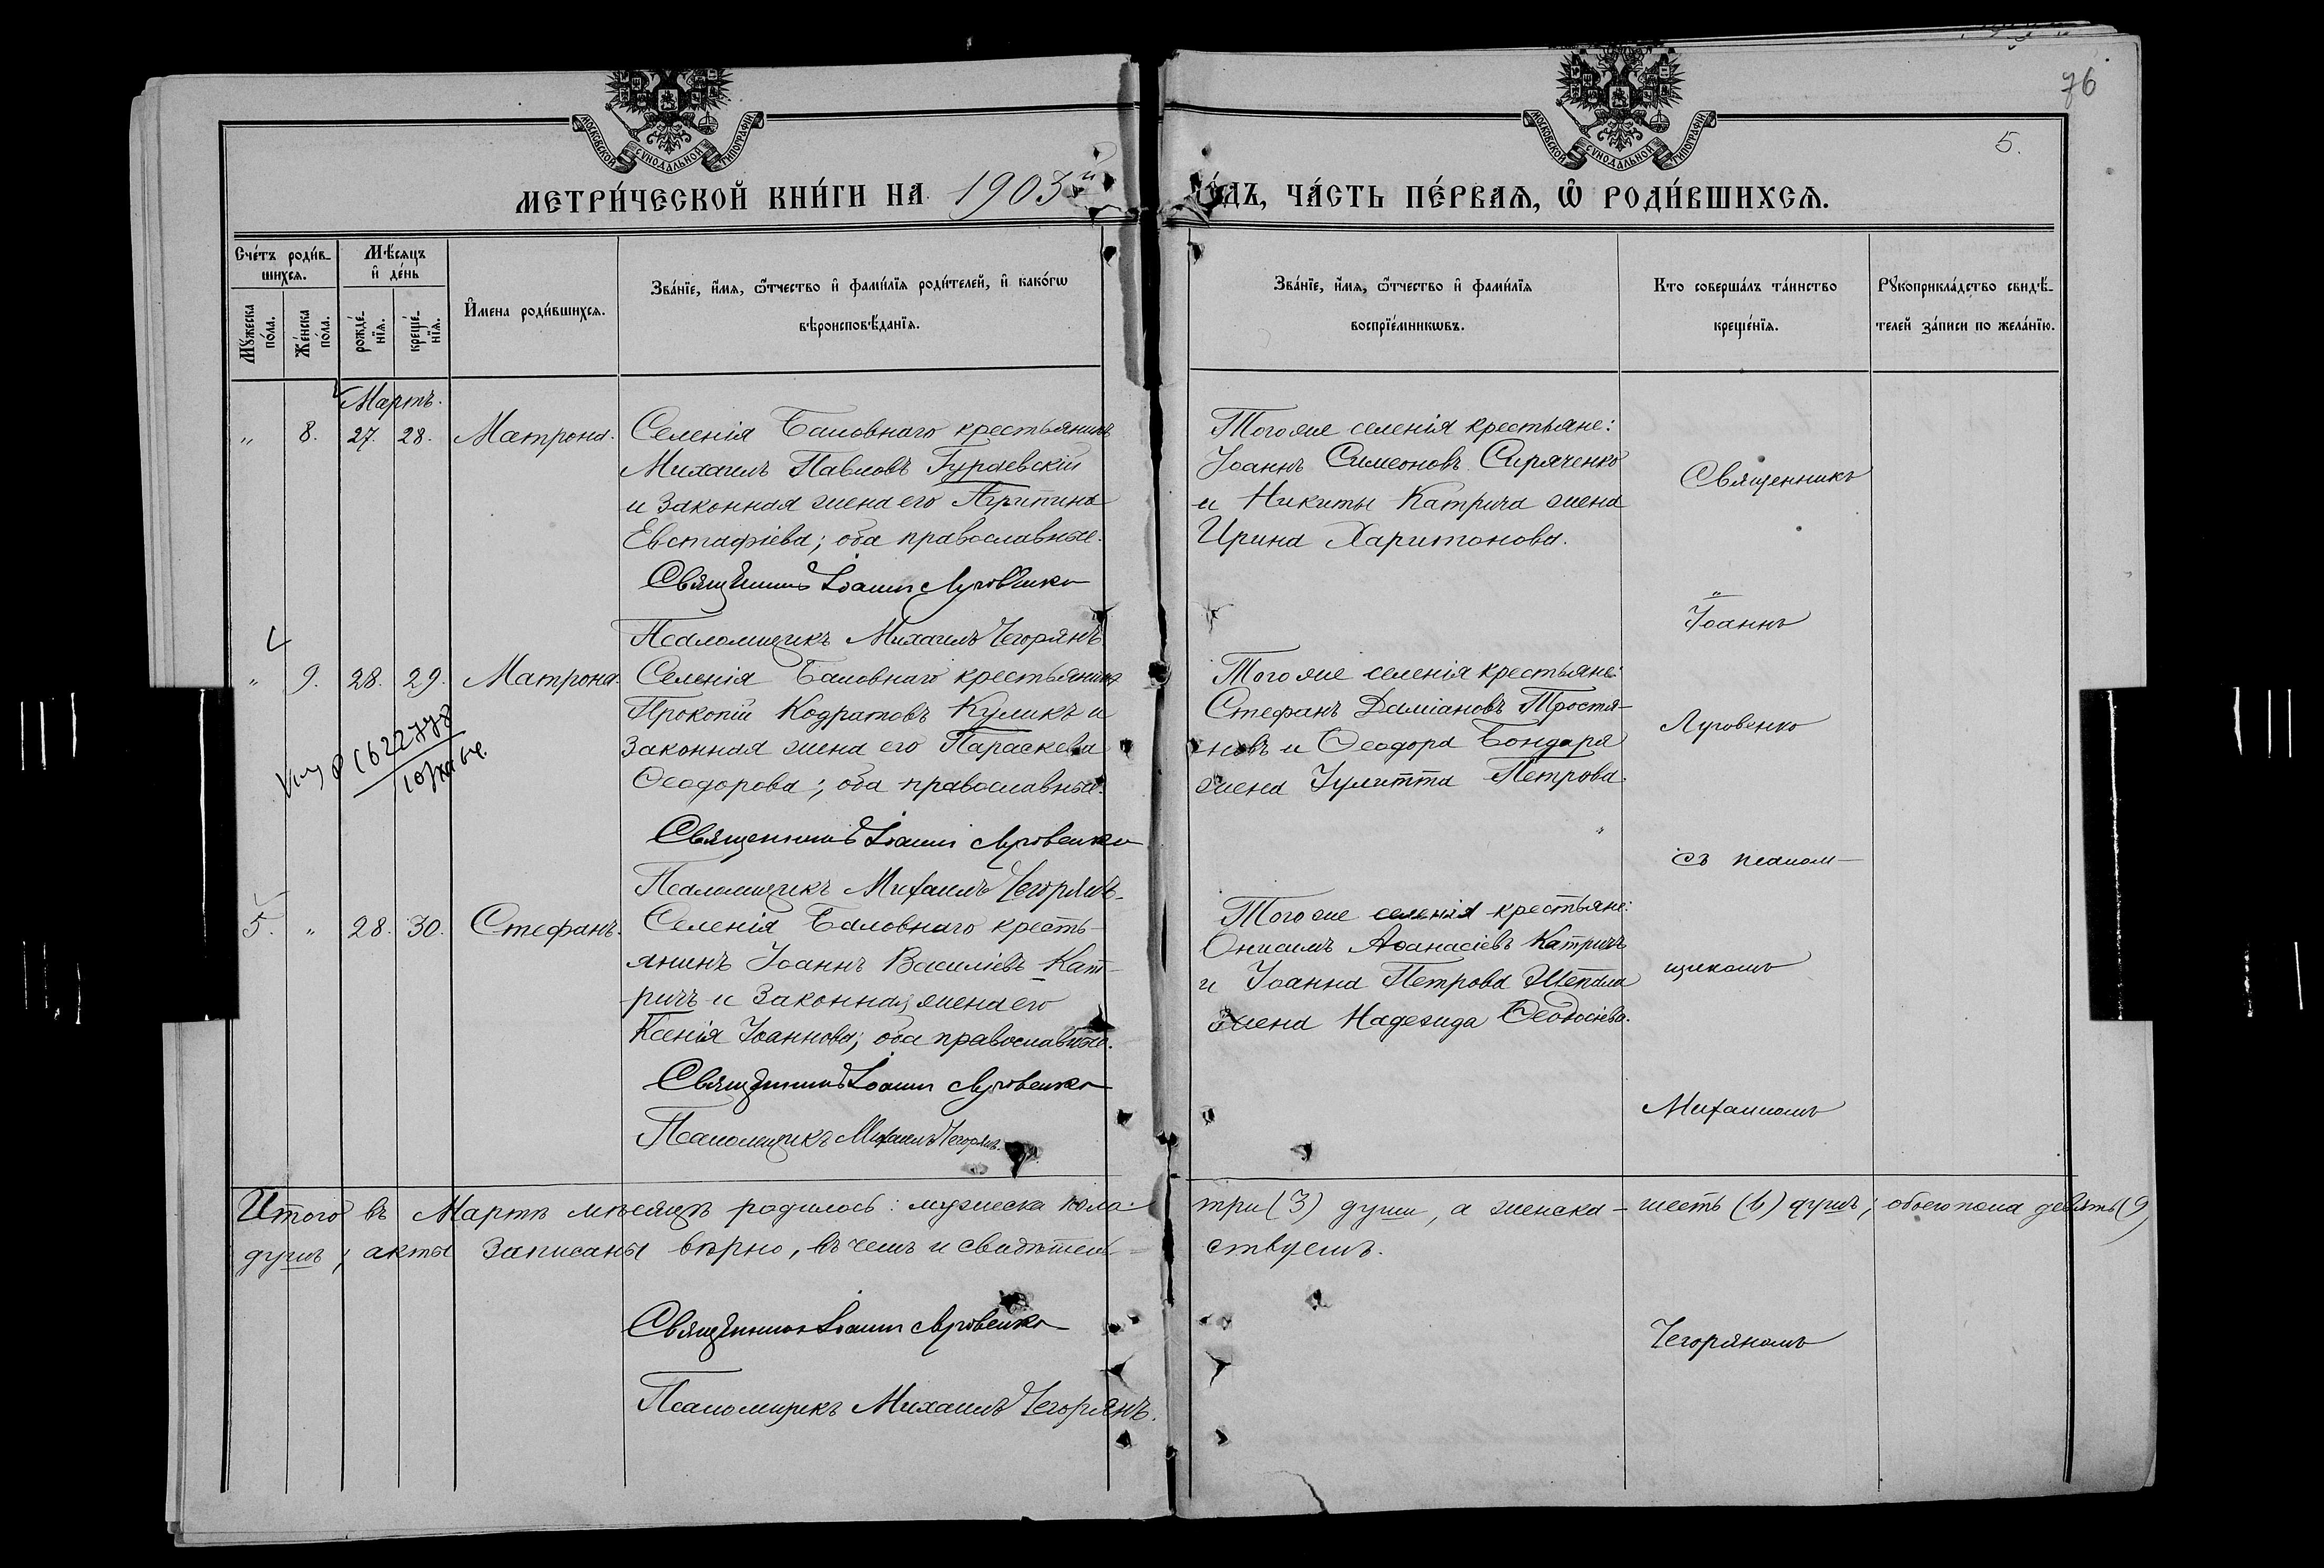 76
5.
МОСКОВСКОЙ СѴНОДАЛЬНОЙ ТИПОГРАФІИ
МОСКОВСКОЙ СѴНОДАЛЬНОЙ ТИПОГРАФІИ
МЕТРИ́ЧЕСКОЙ КНИ́ГИ НА 1903й
ГО́ДЪ, ЧА́СТЬ ПЕ́РВАѦ, Ѽ РОДИ́ВШИХСѦ.
Сче́тъ роди́в-
шихсѧ.
Мѣ́сѧцъ
и҆ де́нь
Мꙋ́жеска по́ла.
Же́нска по́ла.
рожде́-нїѧ.
креще́-нїѧ.
И҆мена роди́вшихсѧ.
Зва́нїе, и҆́мѧ, ѻ҆́тчество и҆ фами́лїѧ роди́телей, и҆ како́гѡ
вѣроисповѣ́данїѧ.
Зва́нїе, и҆́мѧ, ѻ҆́тчество и҆ фами́лїѧ
воспрїе́мникѡвъ.
Кто соверша́лъ та́инство
креще́нїѧ.
Рꙋкоприкла́дство свидѣ́-
телей за́писи по жела́нїю.
Мартъ.
" 8. 27. 28. Матрона. Селенія Баловнаго крестьянинъ
Михаилъ Павловъ Гураевскій
и законная жена его Агрипина
Евстафіева; оба православные.
Священникъ Іоаннъ Луговенко
Псаломщикъ Михаилъ Чегорянъ.
Того же селенія крестьяне:
Іоаннъ Симеоновъ Сиряченко
и Никиты Катрича жена
Ирина Харитонова.
Священникъ
Іоаннъ
" 9. 28. 29. Матрона. Селенія Баловнаго крестьянинъ
Прокопій Кодратовъ Куликъ и
законная жена его Параскева
Ѳеодорова; оба православные.
Священникъ Іоаннъ Луговенко
Псаломщикъ Михаилъ Чегорянъ.
Того же селенія крестьяне:
Стефанъ Даміановъ Тростя-
новъ и Ѳеодора Бондаря
жена Іулитта Петрова.
Луговенко
съ псалом-
5. " 28. 30. Стефанъ. Селенія Баловнаго кресть-
янинъ Іоаннъ Василіевъ Кат-
ричъ и законная жена его
Ксенія Іоаннова; оба православные.
Священникъ Іоаннъ Луговенко
Псаломщикъ Михаилъ Чегорянъ.
Того же селенія крестьяне:
Онисимъ Аѳанасіевъ Катричъ
и Іоанна Петрова
жена Надежда Ѳеодосіева.
щикомъ
Михаиломъ
Итого въ Мартѣ мѣсяцѣ родилось: мужеска пола- три (3) души, а женска - шесть (6) душъ; обоего пола девять (9)
душъ; акты записаны вѣрно, въ чемъ и свидѣтель- ствуемъ.
Священникъ Іоаннъ Луговенко
Псаломщикъ Михаилъ Чегорянъ.
Чегоряномъ